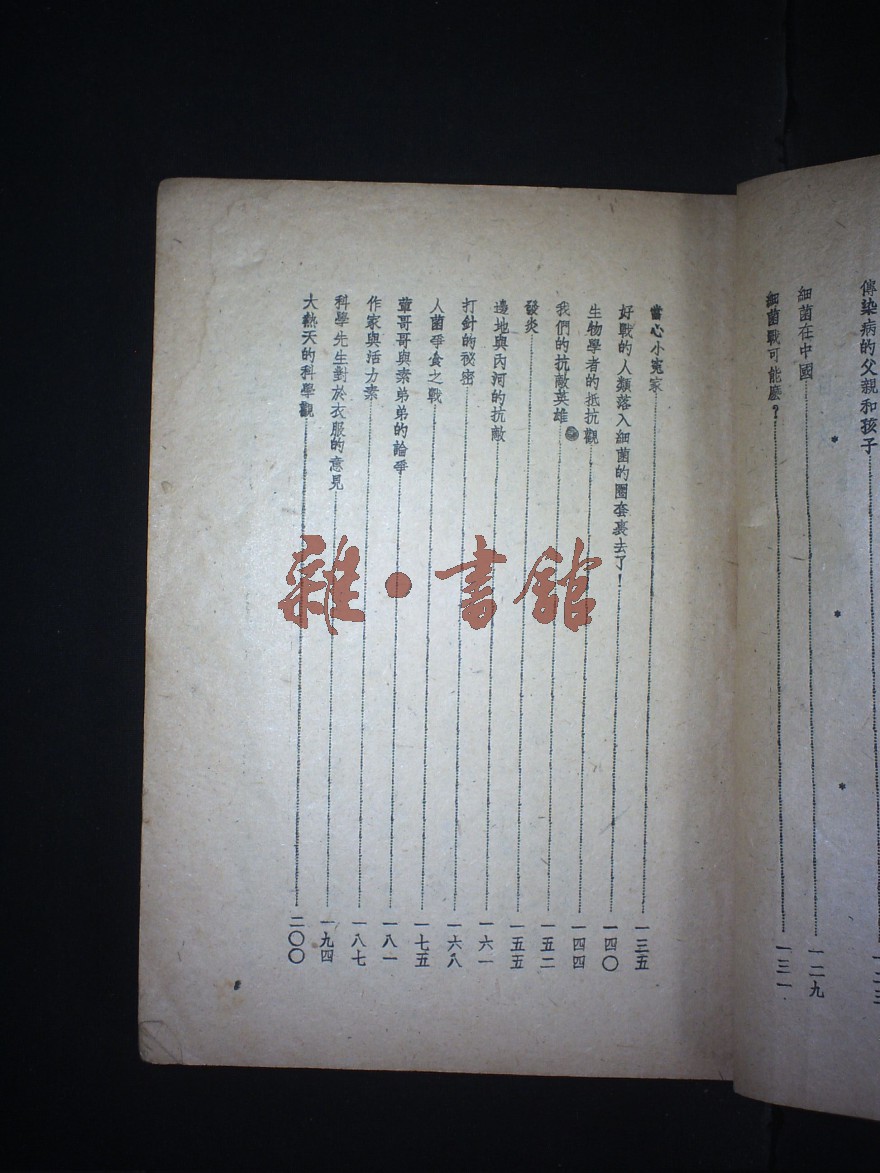 傳染病的父親和孩子……一二三
細菌在中國……一二九
細菌戰可能麽？……一三一
* * *
當心小冤家……一三五
好戰的人類落入細菌的圈套裏去了！……一四〇
生物學者的抵抗觀……一四四
我們的抗敵英雄……一五二
發炎……一五五
邊地與內河的抗敵……一六一
打針的祕密……一六八
人菌爭食之戰……一七五
葷哥哥與素弟弟的論爭……一八一
作家與活力素……一八七
科學先生對於衣服的意見……一九四
大熱天的科學觀……二〇〇
雜·書館